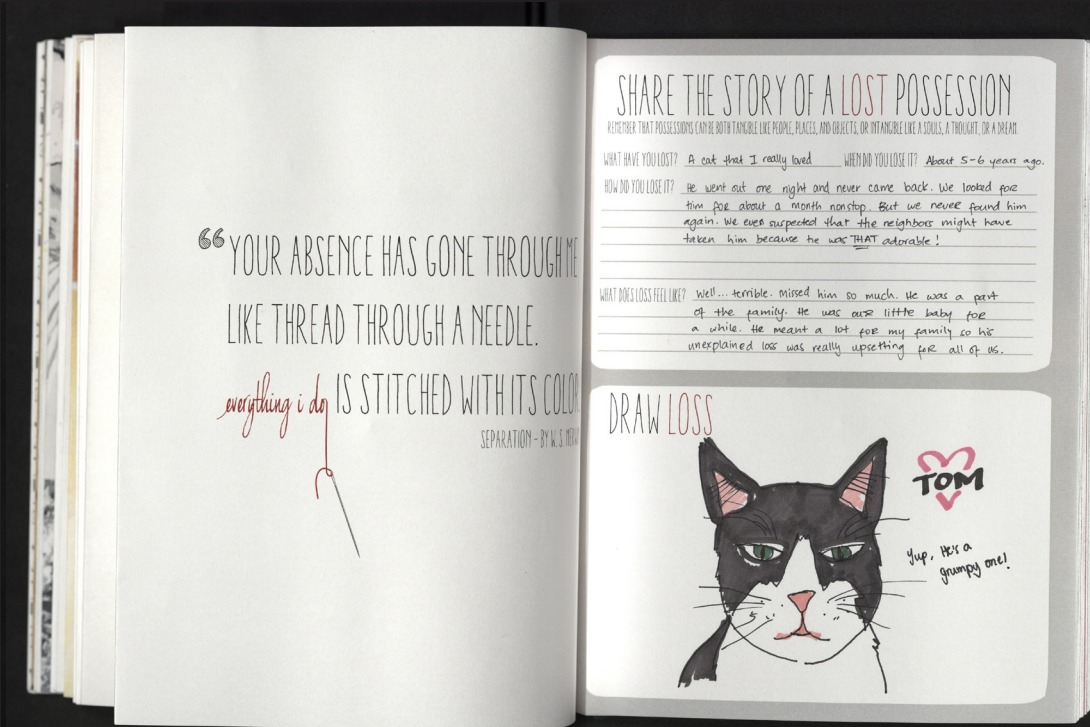 “YOUR ABSENCE HAS GONE THROUGH ME
LIKE THREAD THROUGH A NEEDLE.
everything i do IS STITCHED WITH ITS COLOR.
SEPARATION - BY W. S.
SHARE THE STORY OF A LOST POSSESSION
REMEMBER THAT POSSESSIONS CAN BE BOTH TANGIBLE LIKE PEOPLE, PLACES, AND OBJECTS, OR INTANGIBLE LIKE A SOULS, A THOUGHT, OR A DREAM.
WHAT HAVE YOU LOST? A cat that I really loved WHEN DID YOU LOSE IT? About 5-6 years ago.
HOW DID YOU LOSE IT? He went out one night and never came back. We looked for
him for about a month nonstop. But we never found him
again. We even suspected that the neighbors might have
taken him because he was THAT adorable!
WHAT DOES LOSS FEEL LIKE? Well... terrible. Missed him so much. He was a part
of the family. He was our little baby for
a while. He meant a lot for my family so his
unexplained loss was really upsetting for all of us.
DRAW LOSS
TOM
Yup, He's a
grumpy one!